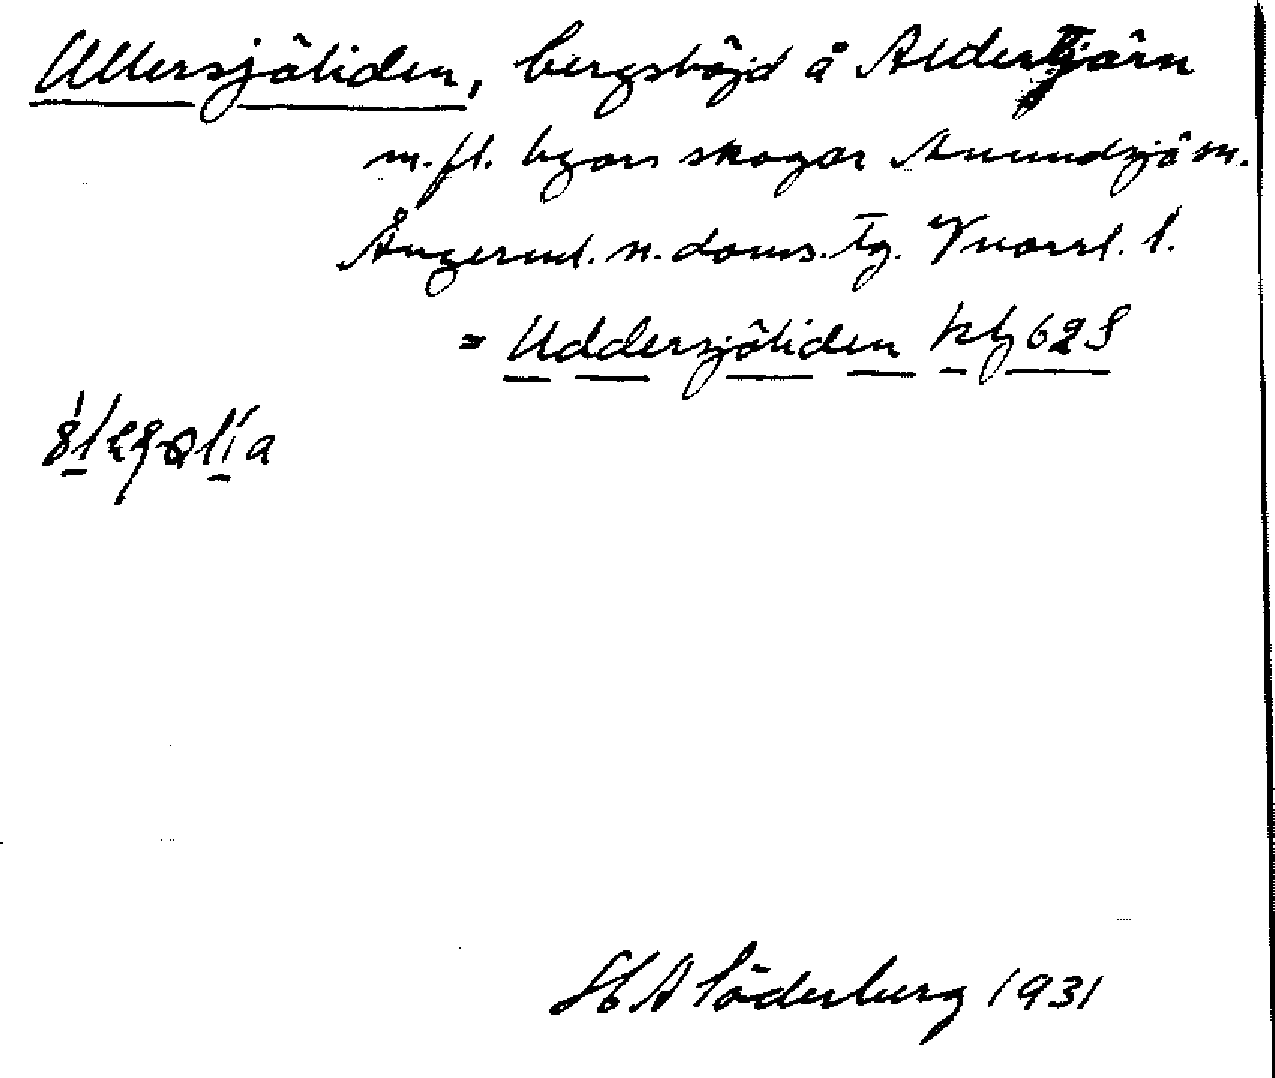 Ullersjöliden, bergshöjd å Aldertjärn
m. fl. byars skogar Anundsjö sn.
Ångerml. n. doms. tg. Vnorrl. l.
= Uddersjöliden kbl 62 S
H A Söderberg 1931